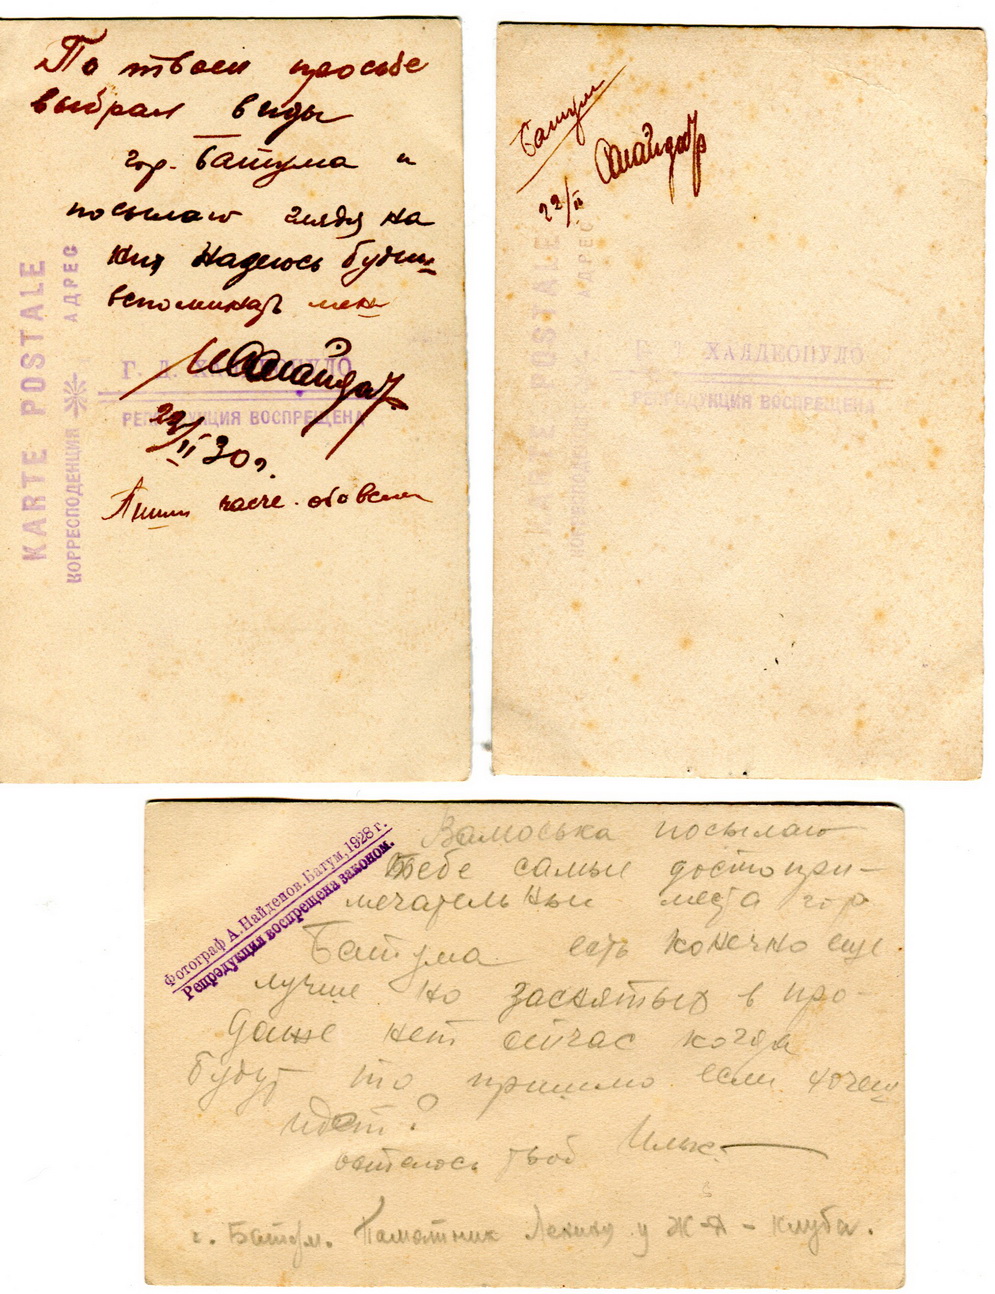 По твоей просьбе
выбрал виды
гор. Батума и
посылаю глядя на
них надеюсь будеш
вспоминать мен
29/II 30г.
Пиши чаще обо всем
KARTE POSTALE
КОРРЕСПОНДЕНЦИЯ АДРЕС
Г. Д. ХАЛДЕОПУЛО
РЕПРОДУКЦИЯ ВОСПРЕЩЕНА
Батум
22/II
KARTE POSTALE
АДРЕС
Г. Д. ХАЛДЕОПУЛО
РЕПРОДУКЦИЯ ВОСПРЕЩЕНА
Фотограф А. Найденов. Батум, 1928 г.
Репредукция воспрещена законом.
посылаю
тебе самые достопри-
мечательные места гор
Батума есть конечно еще
лучше но заснятых в про-
даже нет сейчас когда
будут то пришлю если хочеш
идет?
остаюсь твой
г. Батум. Памятник Ленину у Ж-Д - клуба.